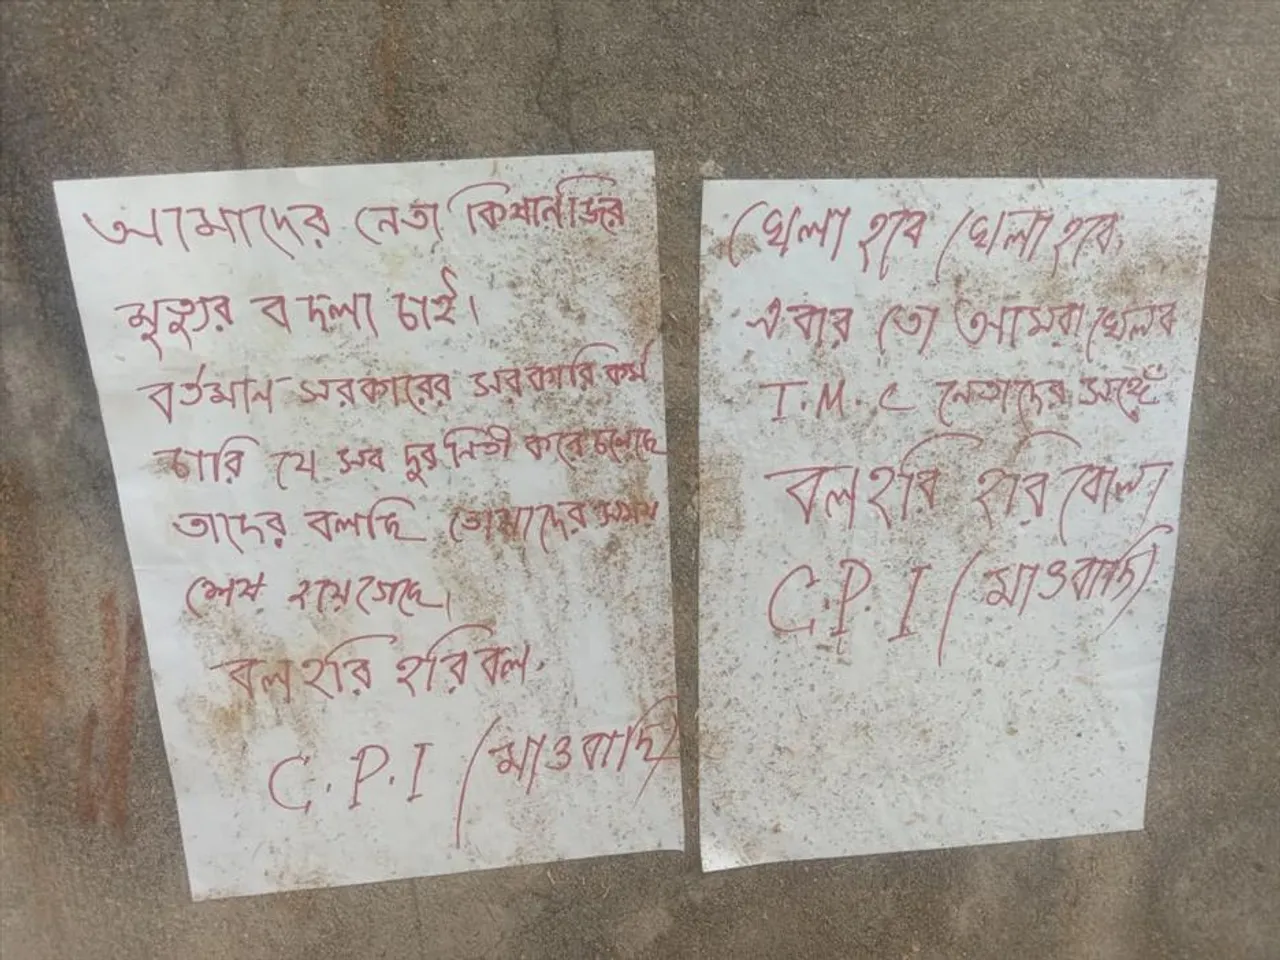 আমাদের নেতা কিষানজির
মৃত্যুর বদলা চাই।
বর্তমান সরকারের সরকারি কর্ম
চারি যে সব দুরনিতী করে চলেছে
তাদের বলছি তোমাদের সময়
শেষ হয়ে গেছে।
বল হরি হরি বল.
C.P.I (মাওবাদি)
খেলা হবে খেলা হবে,
এবার তো আমরা খেলব
T.M.C নেতাদের সাথে
বল হরি হরি বোল
C.P.I (মাওবাদি)